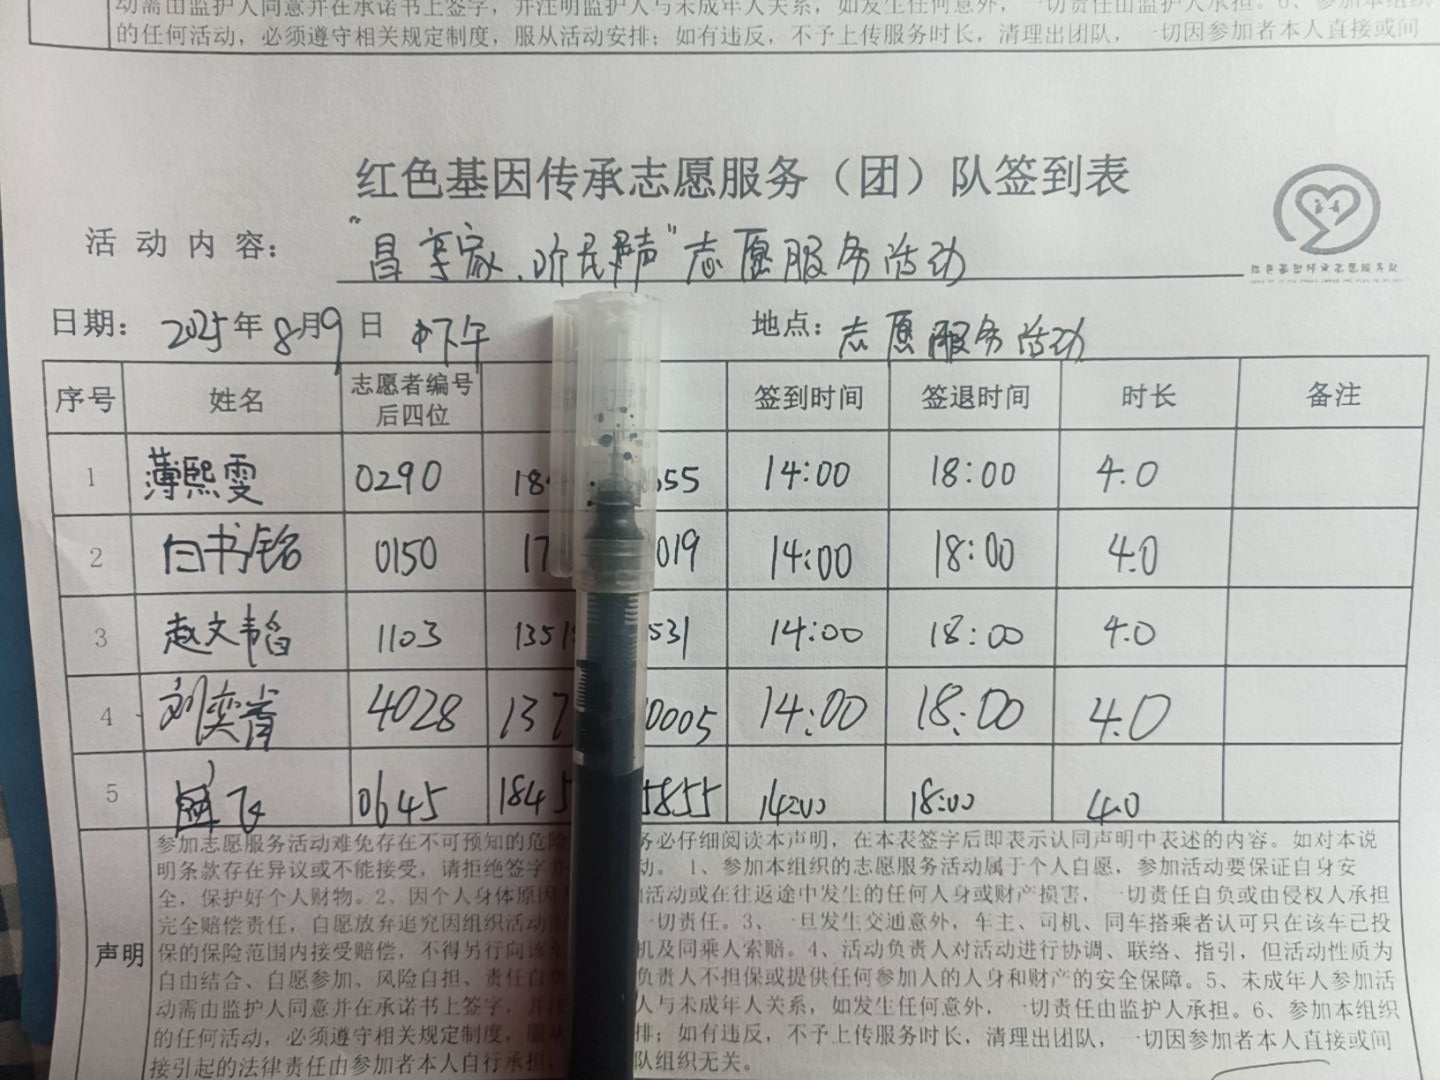 动需由监护人同意并在承诺书上签字，并注明监护人与未成年人关系，如发生任何意外，一切责任由监护人承担。6、参加本组织
的任何活动，必须遵守相关规定制度，服从活动安排；如有违反，不予上传服务时长，清理出团队，一切因参加者本人直接或间
红色基因传承志愿服务（团）队签到表
活动内容： “昌享家、听民声”志愿服务活动
日期： 2025年8月9日 下午 地点：志愿服务活动
序号 姓名 志愿者编号后四位 签到时间 签退时间 时长 备注
1 薄熙雯 0290 18 655 14:00 18:00 4.0
2 白书铭 0150 17 019 14:00 18:00 4.0
3 赵文韬 1103 135 531 14:00 18:00 4.0
4 刘奕肖 4028 137 0005 14:00 18:00 4.0
5 飞 0645 1845 5855 14:00 18:00 4.0
声明
参加志愿服务活动难免存在不可预知的危险 务必仔细阅读本声明，在本表签字后即表示认同声明中表述的内容。如对本说
明条款存在异议或不能接受，请拒绝签字 动。 1、参加本组织的志愿服务活动属于个人自愿，参加活动要保证自身安
全，保护好个人财物。2、因个人身体原因 活动或在往返途中发生的任何人身或财产损害，一切责任自负或由侵权人承担
完全赔偿责任，自愿放弃追究因组织活动 一切责任。3、一旦发生交通意外，车主、司机、同车搭乘者认可只在该车已投
保的保险范围内接受赔偿，不得另行向该车 机及同乘人索赔。4、活动负责人对活动进行协调、联络、指引，但活动性质为
自由结合、自愿参加、风险自担、责任自负 负责人不担保或提供任何参加人的人身和财产的安全保障。5、未成年人参加活
动需由监护人同意并在承诺书上签字，并注 人与未成年人关系，如发生任何意外，一切责任由监护人承担。6、参加本组织
的任何活动，必须遵守相关规定制度，服从 排；如有违反，不予上传服务时长，清理出团队，一切因参加者本人直接或间
接引起的法律责任由参加者本人自行承担， 队组织无关。